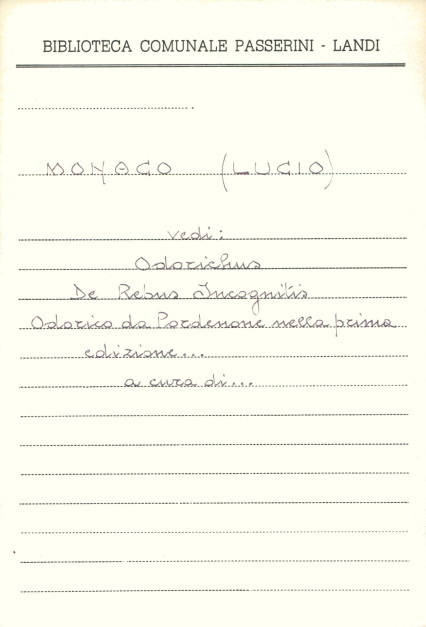 BIBLIOTECA COMUNALE PASSERINI - LANDI
MONACO (LUCIO)
vedi:
Odorichus
De Rebus Incognitis
Odorico da Pordenone nella prima
edizione...
a cura di...